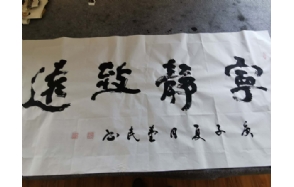 寧靜致遠
庚子夏月